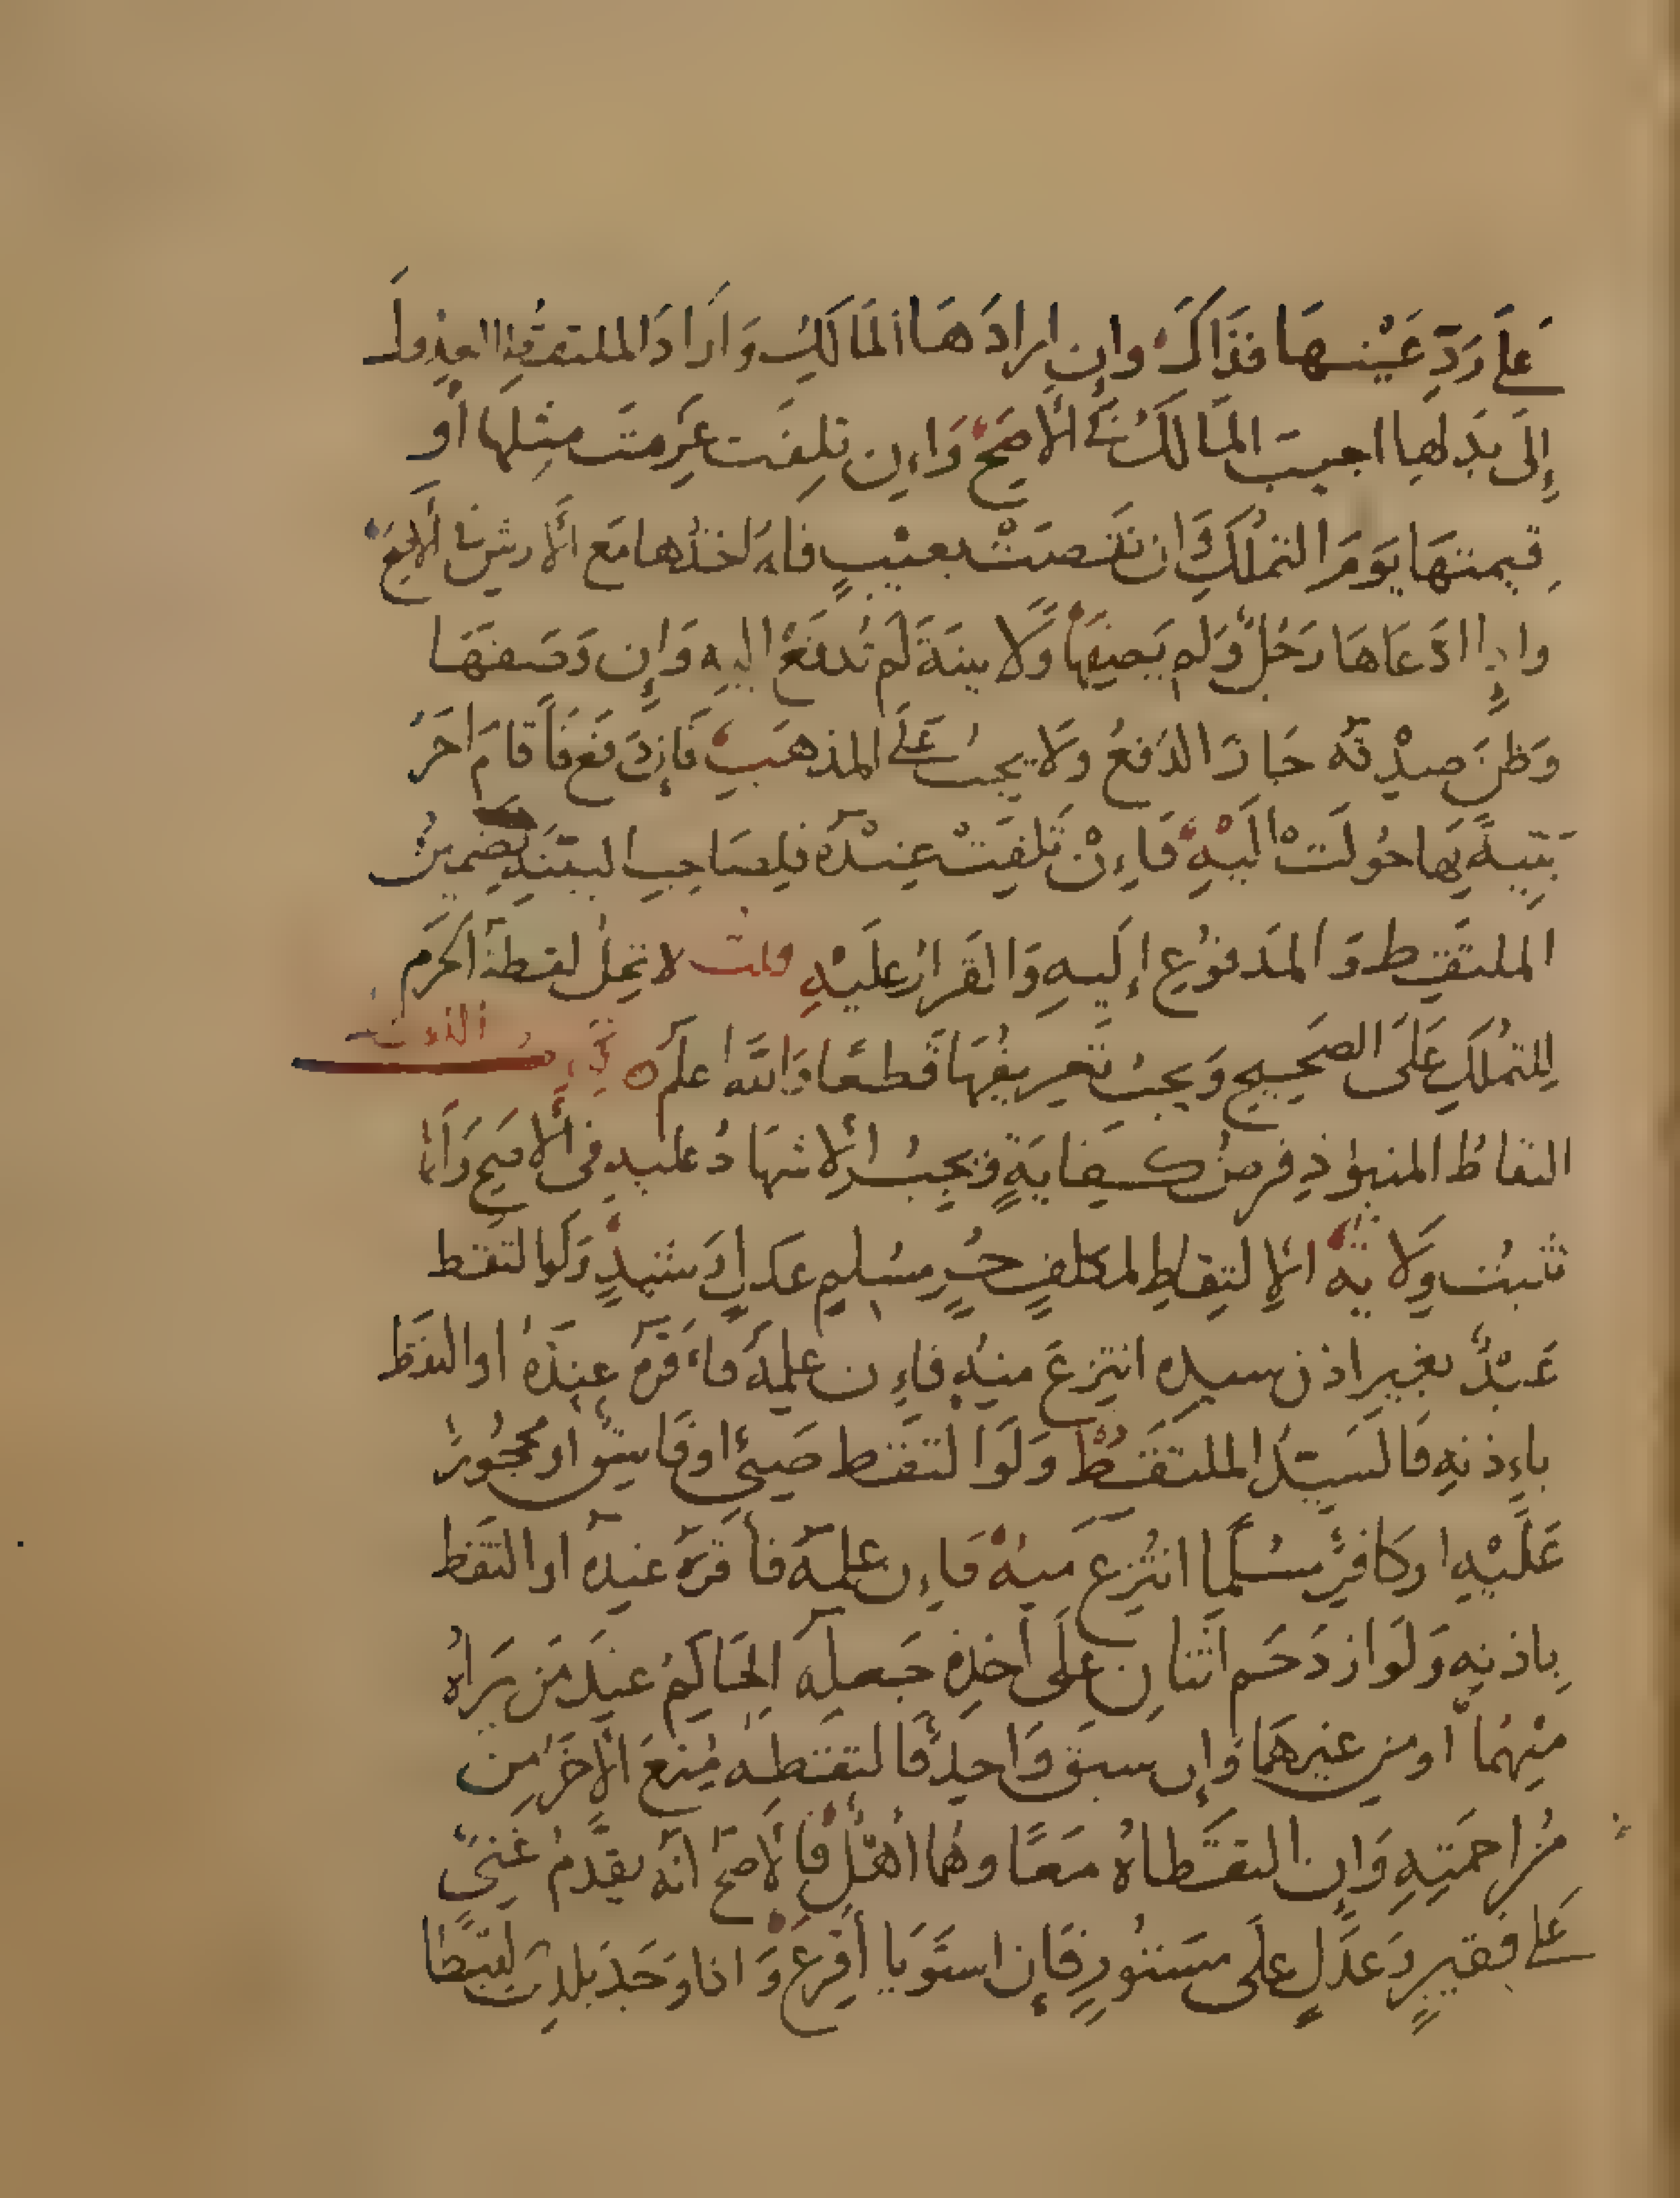 عَلَى رَدِّ عَيْنِهَا فَذَاكَ وَإِن ارادَهَا المَالِكُ وَأَرَادَ الملتقطُ العدولَ
إِلَى بَدَلِهِا اجيبَ المَالكُ فِي الأَصَحِّ وَإِن تلِفَت غَرِمَت مثلها أو
قيمتهَا يَومَ التمَلُّكِ وَان نَقَصَتْ بعيْبٍ فَلَهُ اخذُها مَع الأرشِ في الأصَحِّ
واذا ادَّعَاهَا رَجُلٌ وَلم يَصِفهَا وَلَا بينَةَ لَم تُدفَعْ اليهِ وَإِن وَصَفَهَا
وَظنَّ صِدْقَهُ جَازَ الدَفعُ ولَا يجبُ عَلَى المذهَبِ فَإِن دَفَعَ فَأقامَ اخَرُ
بَيِّنةً بِهَا حُولَتْ الَيْهِ فَإِنْ تَلِفَتْ عِنْدَهُ فلِصَاحِبِ البيّنَةِ تَضمينُ
الملتَقِط وَالمَدفوُعِ إِلَيهِ وَالقَرارُ عَلَيْهِ قلت لا تحِلُ لقطةُ الحَرَم
لِلتمَلُّكِ عَلَى الصَحِيحِ وَيجبُ تَعريفُهَا قَطعًا وَاللّهُ اعلَم
التقاطُ المنبوُذِ فرضُ كِفَايَةٍ وَيجِبُ الإشهَادُ عليهِ فى الأصَحِ وَإنما
تثبتُ وِلَايةُ الإلتِقاطِ لمكلفٍ حُرٍ مسُلمٍ عَدلٍ رَشيدٍ وَلَو التقط
عَبْدٌ بغيرِ اذن سيدِهِ انتزِعَ منهُ فإِن علِمَهُ فأقَرَّهُ عِندَهُ او التقَط
باءِذنِهِ فَالسَيِّدُ الملتقطُ وَلَو التقَط صَبيٌ اوفَاسِقٌ او مَحجُورٌ
عَلَيْهِ اوكافرٌ مسُلمًا انتُزِعَ مِنهُ فَإِن علِمَهُ فأقرهُ عندهُ او التقَط
بِاذنِهِ وَلَو ازدَحَم اثنَانِ عَلَى أخذِهِ جَعلَهُ الحَاكِمُ عندَ مَن يَرَاهُ
مِنْهُمَا أو من غيرهمَا وَإن سبَق وَاحِدٌ فَالتقطهُ مُنِعَ الآخَرُ مِن
مُزَاحمَتِهِ وَإن التقَطاهُ مَعًا وهُما أهْلٌ فَالأصَحُّ انهُ يقَدَّمُ غَنيٌّ
عَلَى فقيرٍ وَعَدلٍ عَلَى مَستُورٍ فَإن استَوَيا أُقرِعَ وَاذا وَجَدَ بلديٌّ لقيطا